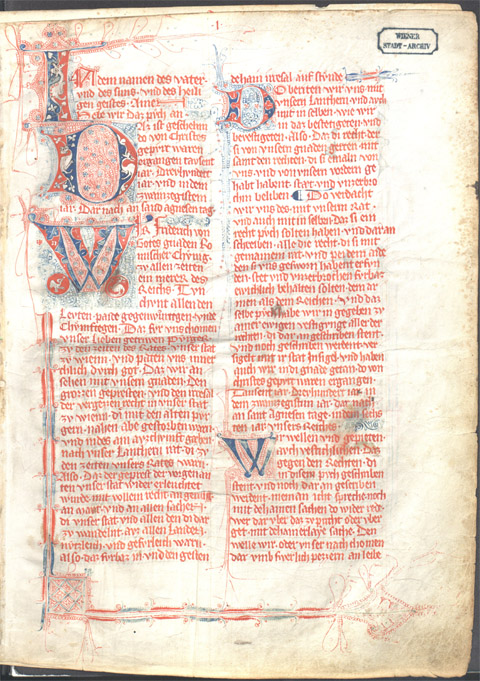 WIENER
STADT-ARCHIV
In dem namen des vater
vnd des suns vnd des heili
gen geistes Amen
Hebe wir daz pvch an
Daz ist geschehen
do von Christes
gepvrt waren
ergangen tausent
iar Drevhvndert
iar vnd in dem
zwainzgistem
iar Dar nach an sand agnesen tag
Wir Friderich von
Gotes gnaden Ro
mischer Chvnig
zv allen zeiten
ein merer des
Reichs Tvn
chvnt allen den
Levten paide gegenwurtigen vnde
Chvmftigen Daz fvr vns chomen
vnser lieben getriwen Pvrger
zv den zeiten des Rates vnser stat
zv wienn vnd paten vns inne
chlich durch got Daz wir an
sehen mit vnsern gnaden Den
grozzen gepresten vnd den irresal
der vergezzen recht in vnser stat
zv wienne di mit den alten pvr
gern nahen abe gestorben warn
vnd
nach vnser Lanthern rat di zv
den zeiten vnsers Rates warn
Also Daz der geprest der vorgenan
ten vnser stat wider erleuchtet
wurde mit vollem recht an genug
an mavt vnd an allen sachen
di vnser stat vnd allen den di dar
zv wandelnt avz allen Landen
nvtzleich vnd gefurleich warn
also daz furbaz in vnd den gesten
dehain irresal auf stvnde
Do berieten wir vns mit
vnsern Lanthern vnd avch
mit in selben wie wir
in daz bestetigeren vnd
bevestigeren also Daz di recht der
si von vnsern gnaden gerten mit
samt den rechten di si emaln von
vns vnd von vnsern vodern ge
habt habent stat vnd vnzerbro
chen beliben Do verdacht
wir vns des mit vnserm Rat
vnd auch mit in selben daz si ein
recht pvch solten haben vnd dar an
schreiben alle die recht di si mit
gemainem rat vnd pei dem aide
den si vns geworn habent er fvn
den stet vnd vnzerbrochen furbaz
ewichlich behalten solten den ar
men als dem Reichen Vnd daz
selbe pvch habe wir in gegeben zv
ainer ewigen vestigvnge aller der
rechten di dar an geschriben stent
vnd noch geschriben werdent ver
sigelt mit ir stat Insigel vnd haben
auch wir in di gnade getan do von
christes gepvrt waren ergangen
Tausent iar Drevhvndert iar in
dem zwainzgistem iar dar nach
an sant Agnesen tage in dem sechs
ten iar vnsers Reichs
Wir wellen vnd gepieten
auch vestichlichen Daz
gegen den Rechten di
an disem pvch geschriben
stent vnd noch dar an geschriben
werdent niemen icht sprech noch
mit dehainen sachen do wider red
wer dar vber daz zv pricht oder vber
get mit dehainerlaye sache Den
welle wir oder vnser nach chomen
dar vmb swerlich pezzern an leibe